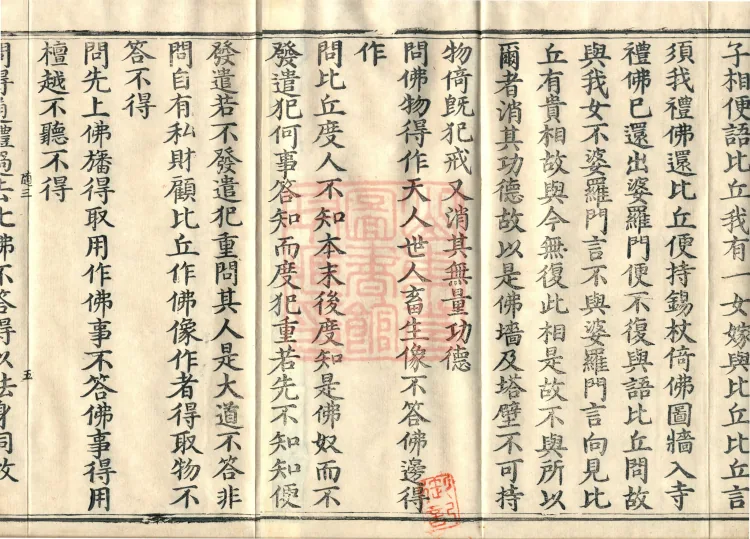 子相便語比丘我有一女嫁與比丘比丘言
須我禮佛還比丘便持錫杖倚佛圖牆入寺
禮佛已還出婆羅門便不復與語比丘問故
與我女不婆羅門言不與婆羅門言向見比
丘有貴相故與今無復此相是故不與所以
爾者消其功德故以是佛墻及塔壁不可持
物倚既犯戒又消其無量功德
問佛物得作天人世人畜生像不答佛邊得
作
問比丘度人不知本末後度知是佛奴而不
發遣犯何事答知而度犯重若先不知知便
發遣若不發遣犯重問其人是大道不答非
問自有私財顧比丘作佛像作者得取物不
答不得
問先上佛旛得取用作佛事不答佛事得用
檀越不聽不得
酉三
五